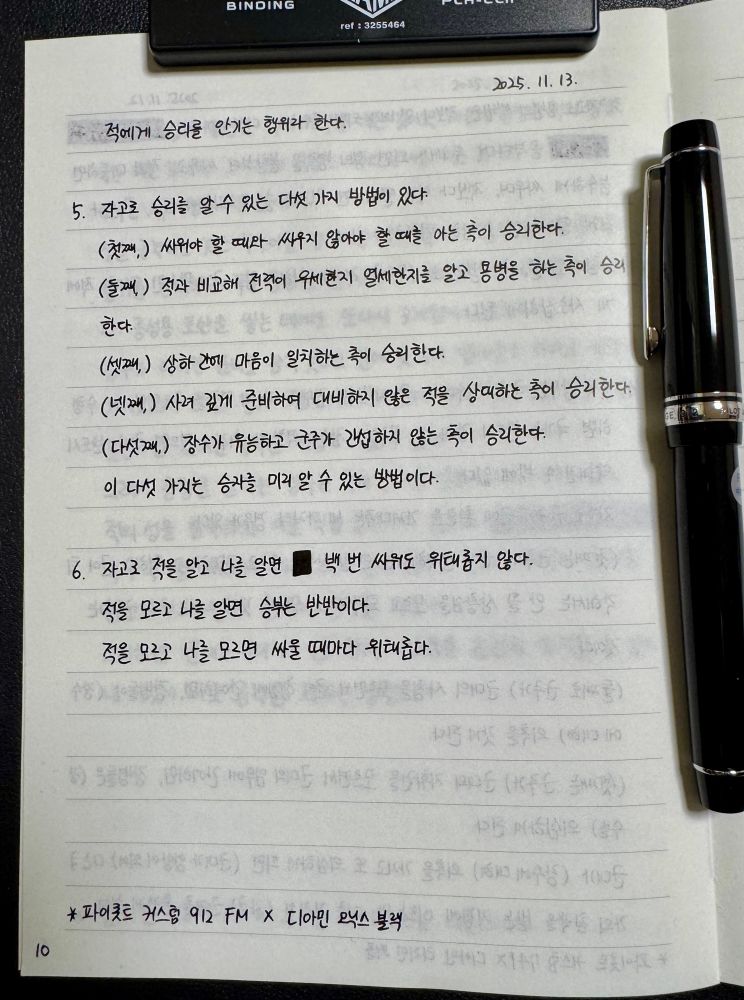 BINDING
ref : 3255464
2025. 11. 13.
적에게 승리를 안기는 행위라 한다.
5. 자고로 승리를 알 수 있는 다섯 가지 방법이 있다.
(첫째,) 싸워야 할 때와 싸우지 않아야 할 때를 아는 측이 승리한다.
(둘째,) 적과 비교해 전력이 우세한지 열세한지를 알고 용병을 하는 측이 승리
한다.
(셋째,) 상하 간에 마음이 일치하는 측이 승리한다.
(넷째,) 사려 깊게 준비하여 대비하지 않은 적을 상대하는 측이 승리한다.
(다섯째,) 장수가 유능하고 군주가 간섭하지 않는 측이 승리한다.
이 다섯 가지는 승자를 미리 알 수 있는 방법이다.
6. 자고로 적을 알고 나를 알면 백 번 싸워도 위태롭지 않다.
적을 모르고 나를 알면 승부는 반반이다.
적을 모르고 나를 모르면 싸울 때마다 위태롭다.
* 파이롯트 커스텀 912 FM X 디아민 오닉스 블랙
10